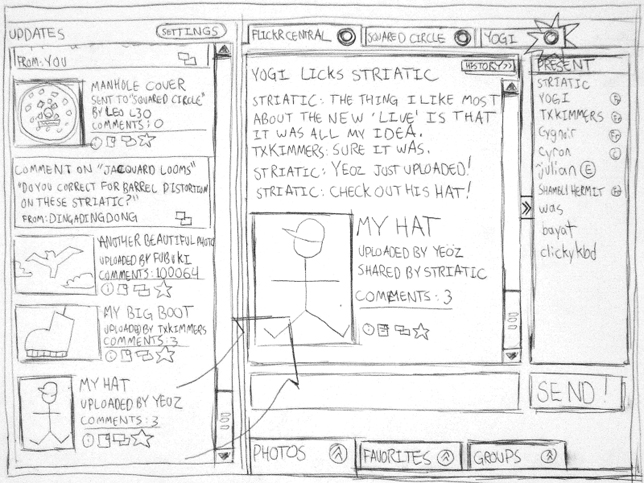 UPDATES
SETTINGS
FROM: YOU
MANHOLE COVER
SENT TO "SQUARED CIRCLE"
BY LEO L30
COMMENTS: 0
COMMENT ON "JACQUARD LOOMS"
"DO YOU CORRECT FOR BARREL DISTORTION
ON THESE STRIATIC?"
FROM: DINGADINGDONG
ANOTHER BEAUTIFUL PHOTO
UPLOADED BY FUBUKI
COMMENTS: 100064
MY BIG BOOT
UPLOADED BY TXKIMMERS
COMMENTS: 3
MY HAT
UPLOADED BY YEOZ
COMMENTS: 3
FLICKRCENTRAL
SQUARED CIRCLE
YOGI
HISTORY>>
YOGI LICKS STRIATIC
STRIATIC: THE THING I LIKE MOST
ABOUT THE NEW 'LIVE' IS THAT
IT WAS ALL MY IDEA.
TXKIMMERS: SURE IT WAS.
STRIATIC: YEOZ JUST UPLOADED!
STRIATIC: CHECK OUT HIS HAT!
MY HAT
UPLOADED BY YEOZ
SHARED BY STRIATIC
COMMENTS: 3
PRESENT
STRIATIC
YOGI
TXKIMMERS
Gygnir
Cyron
julian E
SHAMBLI HERMIT
was
bayat
clickykbd
SEND!
PHOTOS
FAVORITES
GROUPS